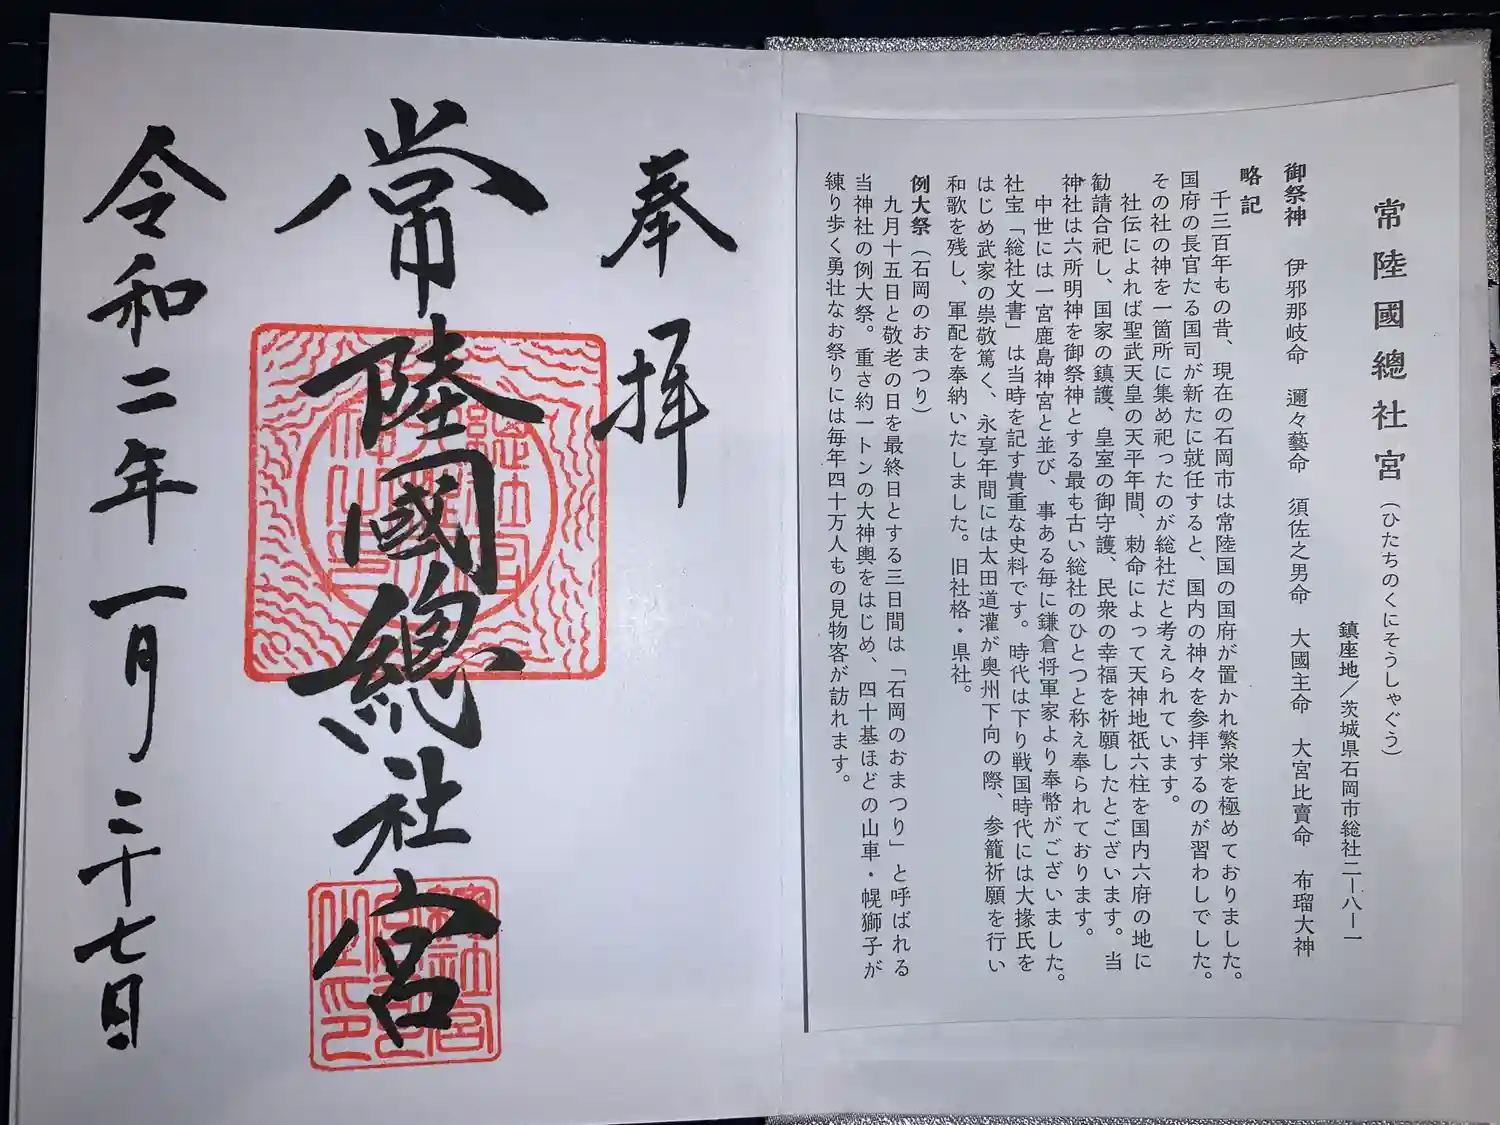 常陸國總社宮(ひたちのくにそうしゃぐう)
鎮座地／茨城県石岡市総社二ー八ー一
御祭神 伊邪那岐命 邇々藝命 須佐之男命 大國主命 大宮比賣命 布瑠大神
略記
千三百年もの昔、現在の石岡市は常陸国の国府が置かれ繁栄を極めておりました。
国府の長官たる国司が新たに就任すると、国内の神々を参拝するのが習わしでした。
その社の神を一箇所に集め祀ったのが総社だと考えられています。
社伝によれば聖武天皇の天平年間、勅命によって天神地祇六柱を国内六府の地に
勧請合祀し、国家の鎮護、皇室の御守護、民衆の幸福を祈願したとございます。当
神社は六所明神を御祭神とする最も古い総社のひとつと称え奉られております。
中世には一宮鹿島神宮と並び、事ある毎に鎌倉将軍家より奉幣がございました。
社宝「総社文書」は当時を記す貴重な史料です。時代は下り戦国時代には大掾氏を
はじめ武家の崇敬篤く、永享年間には太田道灌が奥州下向の際、参籠祈願を行い
和歌を残し、軍配を奉納いたしました。旧社格・県社。
例大祭(石岡のおまつり)
九月十五日と敬老の日を最終日とする三日間は「石岡のおまつり」と呼ばれる
当神社の例大祭。重さ約一トンの大神輿をはじめ、四十基ほどの山車・幌獅子が
練り歩く勇壮なお祭りには毎年四十万人もの見物客が訪れます。
奉拝
常陸國總社宮
令和二年一月二十七日
總社宮之印